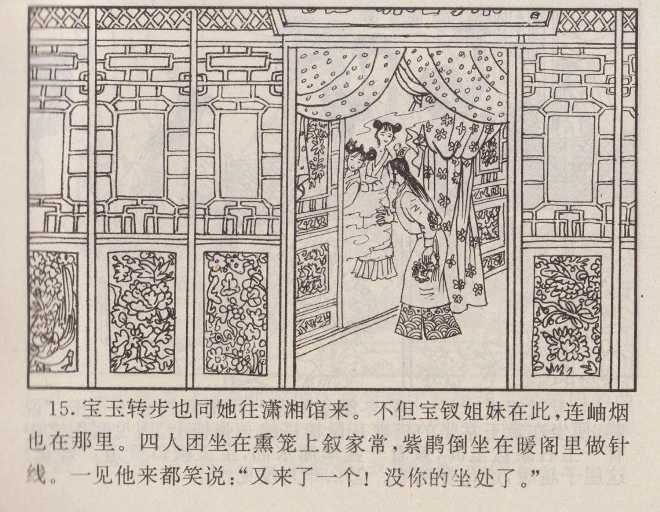 15. 宝玉转步也同她往潇湘馆来。不但宝钗姐妹在此,连岫烟
也在那里。四人团坐在熏笼上叙家常,紫鹃倒坐在暖阁里做针
线。一见他来都笑说:“又来了一个!没你的坐处了。”